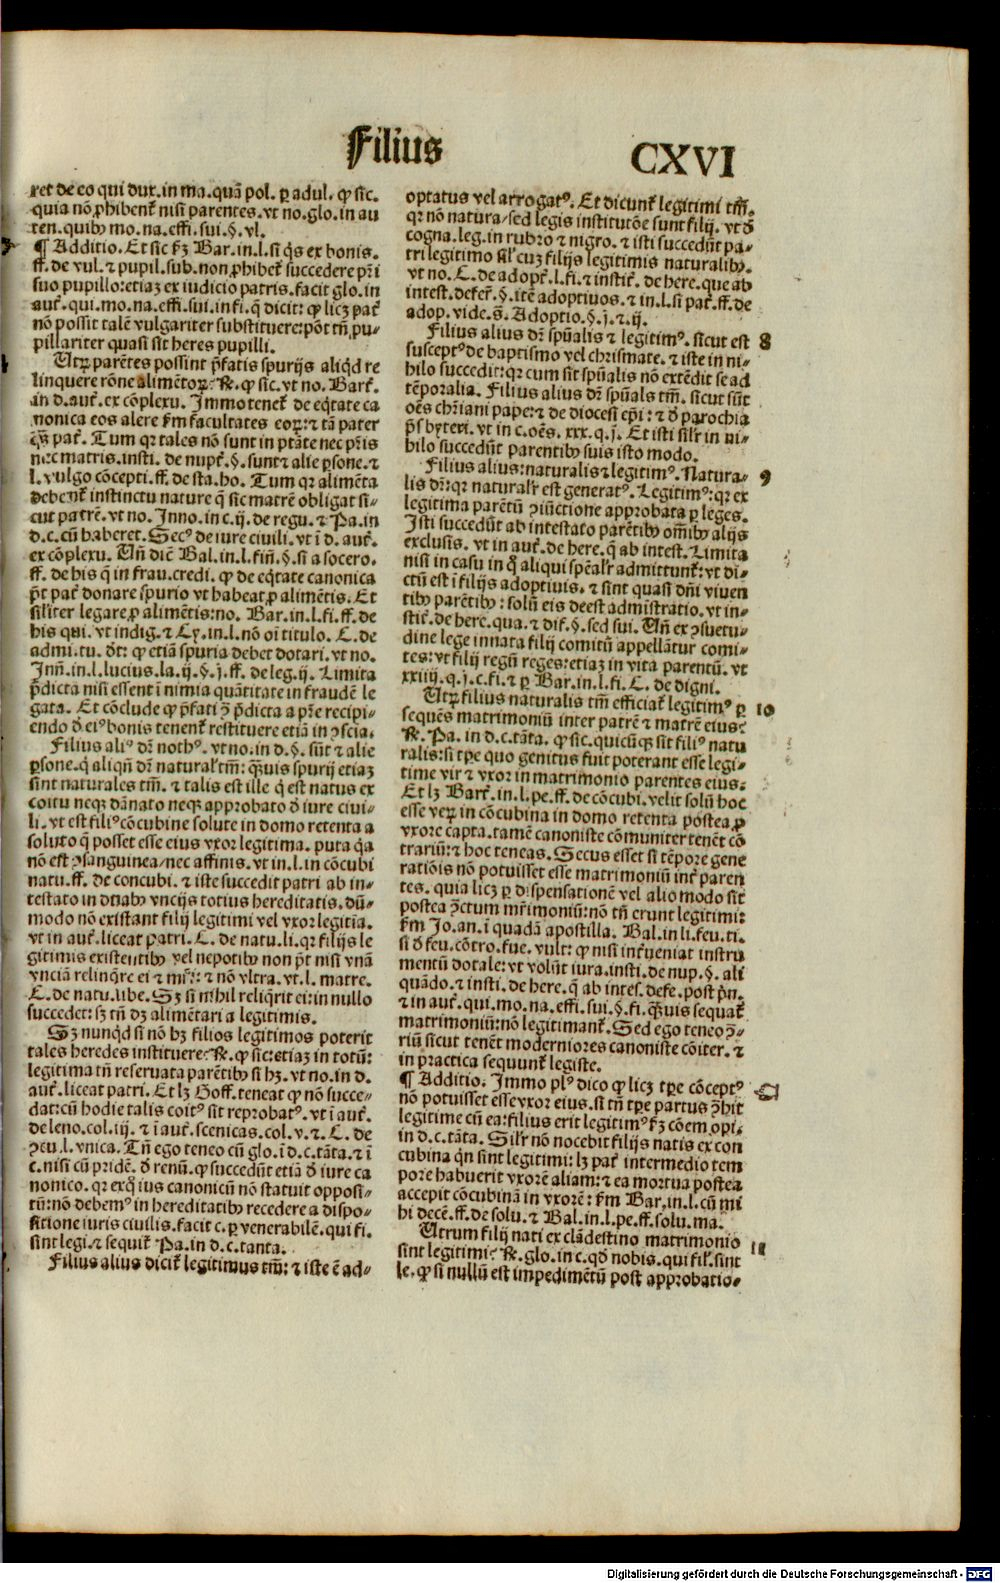 Filius
CXVI
ret de eo qui dux. in ma. quā pol. ꝑ adul. ꝙ sic.
quia nō ꝓhibent̃ nisi parentes. vt no. glo. in au
ten. quibꝰ mo. na. effi. sui. §. vl.
¶ Additio. Et sic fꝫ Bar. in. l. si q̇s ex bonis.
ff. de vul. ⁊ pupil. sub. non ꝓhibet̃ succedere pr̄i
suo pupillo: etiaꝫ ex iudicio patris. facit glo. in
aut̃. qui. mo. na. effi. sui. in fi. q̄ dicit: ꝙ licꝫ pat̃
nō possit talē vulgariter substituere: pōt tn̄ pu-
pillariter quasi sit heres pupilli.
Utꝝ parētes possint p̄fatis spurijs aliqd re
linquere rōne alimētoꝝ: ℞. ꝙ sic. vt no. Bart̃.
in d. aut̃. ex cōplexu. Immo tenet̃ de eq̄tate ca
nonica eos alere fm facultates eoꝝ: ⁊ tā pater
q̄ꝫ pat̃. Tum qr tales nō sunt in ptāte nec pr̄is
nec matris. insti. de nupt̃. §. sunt ⁊ alie ꝑsone. ⁊
l. vulgo cōcepti. ff. de sta. ho. Tum qr alimēta
debent̃ instinctu nature q̄ sic matrē obligat si-
cut patrē. vt no. Inno. in c. ij. de regu. ⁊ Pa. in
d. c. cū haberet. Secꝰ de iure ciuili. vt ī d. aut̃.
ex cōplexu. Un̄ diē Bal. in. l. fin̄. §. si a socero.
ff. de his q̄ in frau. credi. ꝙ de eq̄tate canonica
p̄t pat̃ donare spurio vt habeat ꝓ alimētis. Et
sil̄iter legare ꝓ alimētis: no. Bar. in. l. fi. ff. de
his qui. vt indig. ⁊ Cy. in. l. nō oi titulo. C. de
admi. tu. d̄t: ꝙ etiā spuria debet dotari. vt no.
Inn̄. in. l. lucius. la. ij. §. j. ff. de leg. ij. Limita
p̄dicta nisi essent ī nimia quātitate in fraudē le
gata. Et cōclude ꝙ p̄fati ꝯ̄ p̄dicta a pr̄e recipi-
endo d̄ eiꝰ bonis tenent̃ restituere etiā in ꝯscia.
Filius aliꝰ dr̄ nothꝰ. vt no. in d. §. sūt ⁊ alie
ꝑsone. q̇ aliqn̄ dr̄ natural̃ tm̄: q̄ꝫuis spurij etiaꝫ
sint naturales tm̄. ⁊ talis est ille q̇ est natus ex
coitu neqꝫ dānato neqꝫ approbato d̄ iure ciui-
li. vt est filiꝰ cōcubine solute in domo retenta a
soluto q̄ posset esse eius vxor legitima. puta q̄a
nō est ꝯsanguinea/ nec affinis. vt in. l. in cōcubi
natu. ff. de concubi. ⁊ iste succedit patri ab in-
testato in duabꝰ vncijs totius hereditatis. dū-
modo nō existant filij legitimi vel vxor legitīa.
vt in aut̃. liceat patri. C. de natu. li. qr filijs le
gitimis existentibꝰ vel nepotibꝰ non p̄t nisi vnā
vnciā relinq̄re ei ⁊ mr̄i: ⁊ nō vltra. vt. l. matre.
C. de natu. libe. Sꝫ si nihil reliq̄rit ei: in nullo
succedet: sꝫ tn̄ dꝫ alimētari a legitimis.
Sꝫ nunqd si nō hꝫ filios legitimos poterit
tales heredes instituere: ℞. ꝙ sic: etiaꝫ in totū:
legitima tn̄ reseruata parētibꝰ si hꝫ. vt no. in d.
aut̃. liceat patri. Et lꝫ Goff. teneat ꝙ nō succe-
dat: cū hodie talis coitꝰ sit reprobatꝰ. vt ī aut̃.
de leno. col. iij. ⁊ ī aut̃. scenicas. col. v. ⁊. C. de
ꝯcu. l. vnica. Tn̄ ego teneo cū glo. ī d. c. tāta. ⁊ ī
c. nisi cū pridē. d̄ renū. ꝙ succedūt etiā d̄ iure ca
nonico. qr exq̇ ius canonicū nō statuit opposi-
tū: nō debemꝰ in hereditatibꝰ recedere a dispo-
sitione iuris ciuilis. facit c. ꝑ venerabilē. qui fi.
sint legi. ⁊ sequit̃ Pa. in d. c. tanta.
Filius alius dicit̃ legitimus tm̄: ⁊ iste ē ad-
optatus vel arrogatꝰ. Et dicunt̃ legitimi tm̄.
qr nō natura/ sed legis institutōe sunt filij. vt d̄
cogna. leg. in rubro ⁊ nigro. ⁊ isti succedūt pa-
tri legitimo sil̃ cuꝫ filijs legitimis naturalibꝰ.
vt no. C. de adopt̃. l. fi. ⁊ instit̃. de here. que ab
intest. defer̃. §. itē adoptiuos. ⁊ in. l. si pat̃. ff. de
adop. vide. s̄. Adoptio. §. j. ⁊. ij.
Filius alius dr̄ spūalis ⁊ legitimꝰ. sicut est 8
susceptꝰ de baptismo vel chrismate. ⁊ iste in ni-
hilo succedit: qr cum sit spūalis nō extēdit se ad
tēporalia. Filius alius dr̄ spūals tm̄. sicut sūt
oēs chr̄iani pape: ⁊ de diocesi ep̄i: ⁊ d̄ parochia
p̄sbyteri. vt in c. oēs. xxx. q. j. Et isti sil̃r in ni-
hilo succedūt parentibꝰ suis isto modo.
Filius alius: naturalis ⁊ legitimꝰ. Natura- 9
lis dr̄: qr naturalr̃ est generatꝰ. Legitimꝰ: qr ex
legitima parētū ꝯiūctione approbata ꝑ leges.
Isti succedūt ab intestato parētibꝰ om̄ibꝰ alijs
exclusis. vt in aut̃. de here. q̄ ab intest. Limita
nisi in casu in q̇ aliqui sp̄ealr̃ admittunt̃: vt di-
ctū est ī filijs adoptiuis. ⁊ sint quasi dn̄i viuen
tibꝰ parētibꝰ: solū eis deest admīstratio. vt in-
stit̃. de here. qua. ⁊ dif. §. sed sui. Un̄ ex ꝯsuetu-
dine lege innata filij comitū appellātur comi-
tes: vt filij regū reges: etiaꝫ in vita parentū. vt
xxiiij. q. j. c. fi. ⁊ ꝑ Bar. in. l. fi. C. de digni.
Utꝝ filius naturalis tm̄ efficiat̃ legitimꝰ ꝑ 10
sequēs matrimoniū inter patrē ⁊ matrē eius:
℞. Pa. in d. c. tāta. ꝙ sic. quicūqꝫ sit filiꝰ natu
ralis: si tꝑe quo genitus fuit poterant esse legi-
time vir ⁊ vxor in matrimonio parentes eius:
Et lꝫ Bart̃. in. l. pe. ff. de cōcubi. velit solū hoc
esse veꝝ in cōcubina in domo retenta postea ꝓ
vxore capta. tamē canoniste cōmuniter tenēt cō
trariū: ⁊ hoc teneas. Secus esset si tēpore gene
ratiōis nō potuisset esse matrimoniū int̃ paren
tes. quia licꝫ ꝑ dispensationē vel alio modo sit
postea ꝯ̄ctum mr̄imoniū: nō tn̄ erunt legitimi:
fm Jo. an. ī quadā apostilla. Bal. in li. feu. ti.
si d̄ feu. cōtro. fue. vult: ꝙ nisi int̃ueniat instru
mentū dotale: vt volūt iura. insti. de nup. §. ali
quādo. ⁊ insti. de here. q̄ ab intes. defe. post pn̄.
⁊ in aut̃. qui. mo. na. effi. sui. §. fi. q̄ꝫuis sequat̃
matrimoniū: nō legitimant̃. Sed ego teneo ꝯ̄-
riū sicut tenēt moderniores canoniste cōiter. ⁊
in practica sequunt̃ legiste.
¶ Additio. Immo plꝰ dico ꝙ licꝫ tꝑe cōceptꝰ
nō potuisset esse vxor eius. si tn̄ tꝑe partus ꝯ̄hit
legitime cū ea: filius erit legitimꝰ fꝫ cōem opi-
in d. c. tāta. Sil̃r nō nocebit filijs natis ex con
cubina qn̄ sint legitimi: lꝫ pat̃ intermedio tem
pore habuerit vxorē aliam: ⁊ ea mortua postea
accepit cōcubinā in vxorē: fm Bar. in. l. cū mi
hi decē. ff. de solu. ⁊ Bal. in. l. pe. ff. solu. ma.
Utrum filij nati ex clādestino matrimonio 11
sint legitimi: ℞. glo. in c. qd̄ nobis. qui fil̃. sint
le. ꝙ si nullū est impedimētū post approbatio-
Digitalisierung gefördert durch die Deutsche Forschungsgemeinschaft - DFG